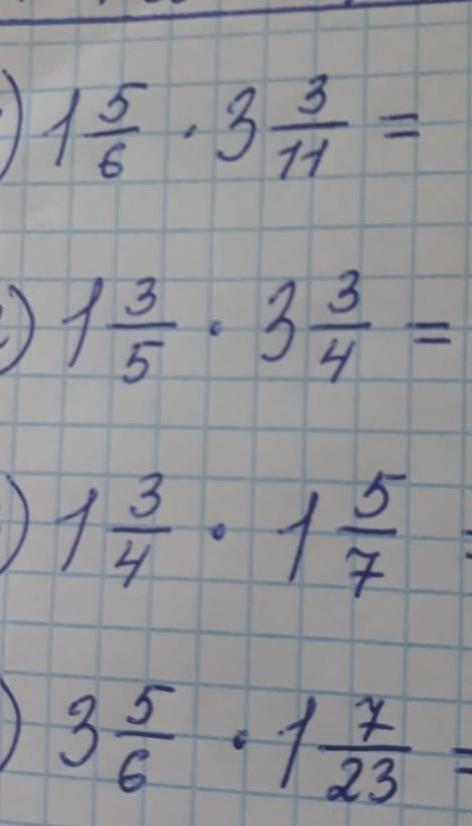 ) 1 5/6 · 3 3/11 =
) 1 3/5 · 3 3/4 =
) 1 3/4 · 1 5/7 =
) 3 5/6 · 1 7/23 =